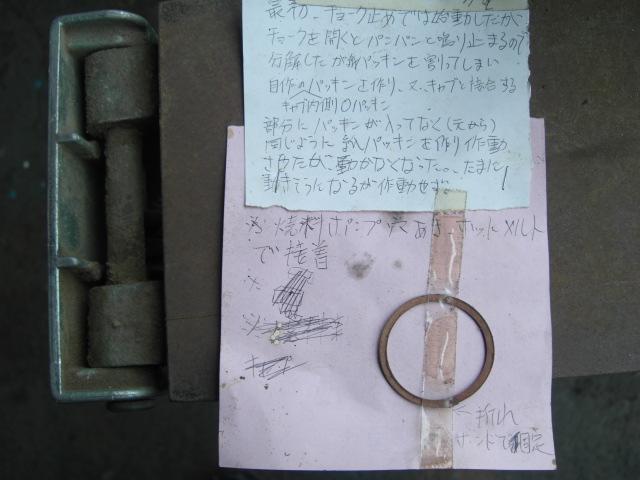 最初、チョーク止めでは始動したが
チョークを開くとパンパンと鳴り止まるので
分解したがパッキンを割ってしまい
自作のパッキンを作り、又、キャブと接合する
キャブ内側Oパッキン
部分にパッキンが入ってなく(元から)
同じようにパッキンを作り作動
させたが動かなくなった。。たまに
動きそうになるが作動せず。
※燃料ポンプ穴あき ホットメルト
で接着
←折れ
ボンドで固定